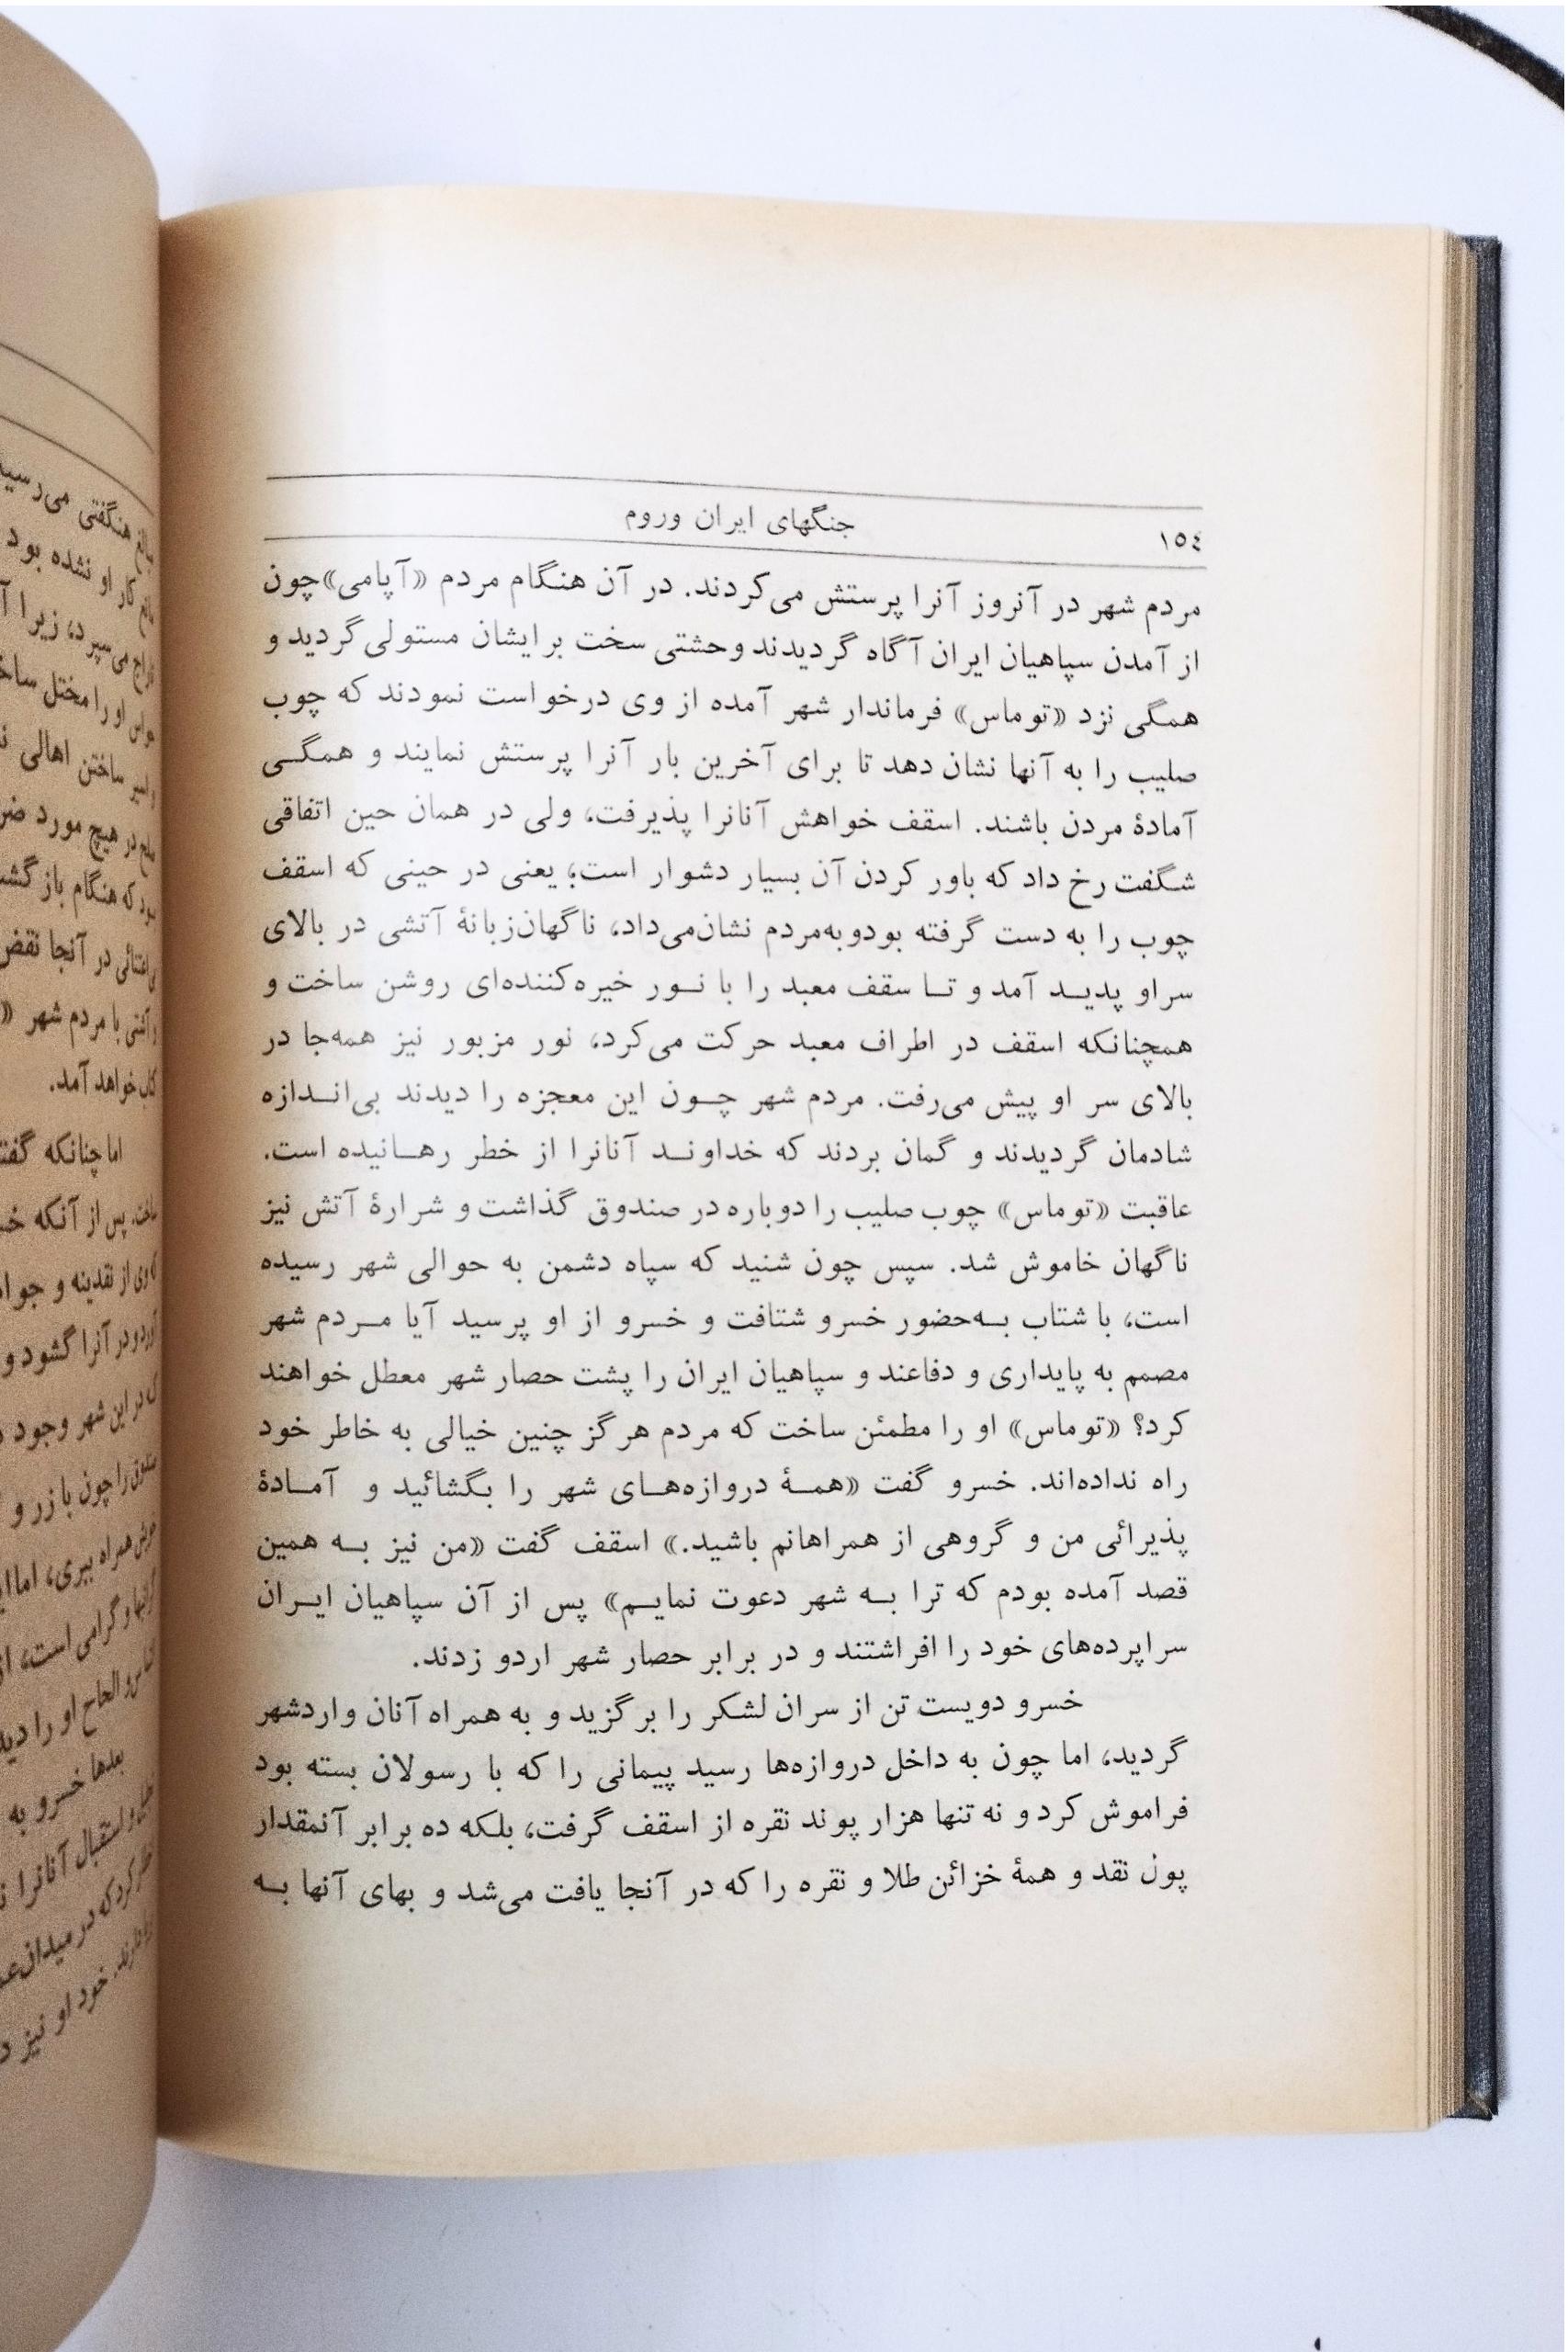 ١٥٤
جنگهای ایران وروم
مردم شهر در آنروز آنرا پرستش می‌کردند. در آن هنگام مردم «آپامی»چون
از آمدن سپاهیان ایران آگاه گردیدند وحشتی سخت برایشان مستولی گردید و
همگی نزد «توماس» فرماندار شهر آمده از وی درخواست نمودند که چوب
صلیب را به آنها نشان دهد تا برای آخرین بار آنرا پرستش نمایند و همگی
آمادهٔ مردن باشند. اسقف خواهش آنانرا پذیرفت، ولی در همان حین اتفاقی
شگفت رخ داد که باور کردن آن بسیار دشوار است؛ یعنی در حینی که اسقف
چوب را به دست گرفته بودوبه‌مردم نشان‌می‌داد، ناگهان‌زبانهٔ آتشی در بالای
سراو پدید آمد و تا سقف معبد را با نور خیره‌کننده‌ای روشن ساخت و
همچنانکه اسقف در اطراف معبد حرکت می‌کرد، نور مزبور نیز همه‌جا در
بالای سر او پیش می‌رفت. مردم شهر چون این معجزه را دیدند بی‌اندازه
شادمان گردیدند و گمان بردند که خداوند آنانرا از خطر رهانیده است.
عاقبت «توماس» چوب صلیب را دوباره در صندوق گذاشت و شرارهٔ آتش نیز
ناگهان خاموش شد. سپس چون شنید که سپاه دشمن به حوالی شهر رسیده
است، با شتاب به‌حضور خسرو شتافت و خسرو از او پرسید آیا مردم شهر
مصمم به پایداری و دفاعند و سپاهیان ایران را پشت حصار شهر معطل خواهند
کرد؟ «توماس» او را مطمئن ساخت که مردم هرگز چنین خیالی به خاطر خود
راه نداده‌اند. خسرو گفت «همهٔ دروازه‌های شهر را بگشائید و آمادهٔ
پذیرائی من و گروهی از همراهانم باشید.» اسقف گفت «من نیز به همین
قصد آمده بودم که ترا به شهر دعوت نمایم» پس از آن سپاهیان ایران
سراپرده‌های خود را افراشتند و در برابر حصار شهر اردو زدند.
خسرو دویست تن از سران لشکر را برگزید و به همراه آنان واردشهر
گردید، اما چون به داخل دروازه‌ها رسید پیمانی را که با رسولان بسته بود
فراموش کرد و نه تنها هزار پوند نقره از اسقف گرفت، بلکه ده برابر آنمقدار
پول نقد و همهٔ خزائن طلا و نقره را که در آنجا یافت می‌شد و بهای آنها به
هنگفتی می‌رسید
کار او نشده بود
می‌سپرد، زیرا
او را مختل
ساختن اهالی
در هیچ مورد
که هنگام باز
در آنجا نقض
با مردم شهر «
خواهد آمد.
اما چنانکه
پس از آنکه
از نقدینه و
در آنرا گشود و
در این شهر وجود
را چون با زر و
همراه ببری، اما
و گرامی است،
الحاح او را
بعدها خسرو به
استقبال آنانرا
که در میدان
خود او نیز